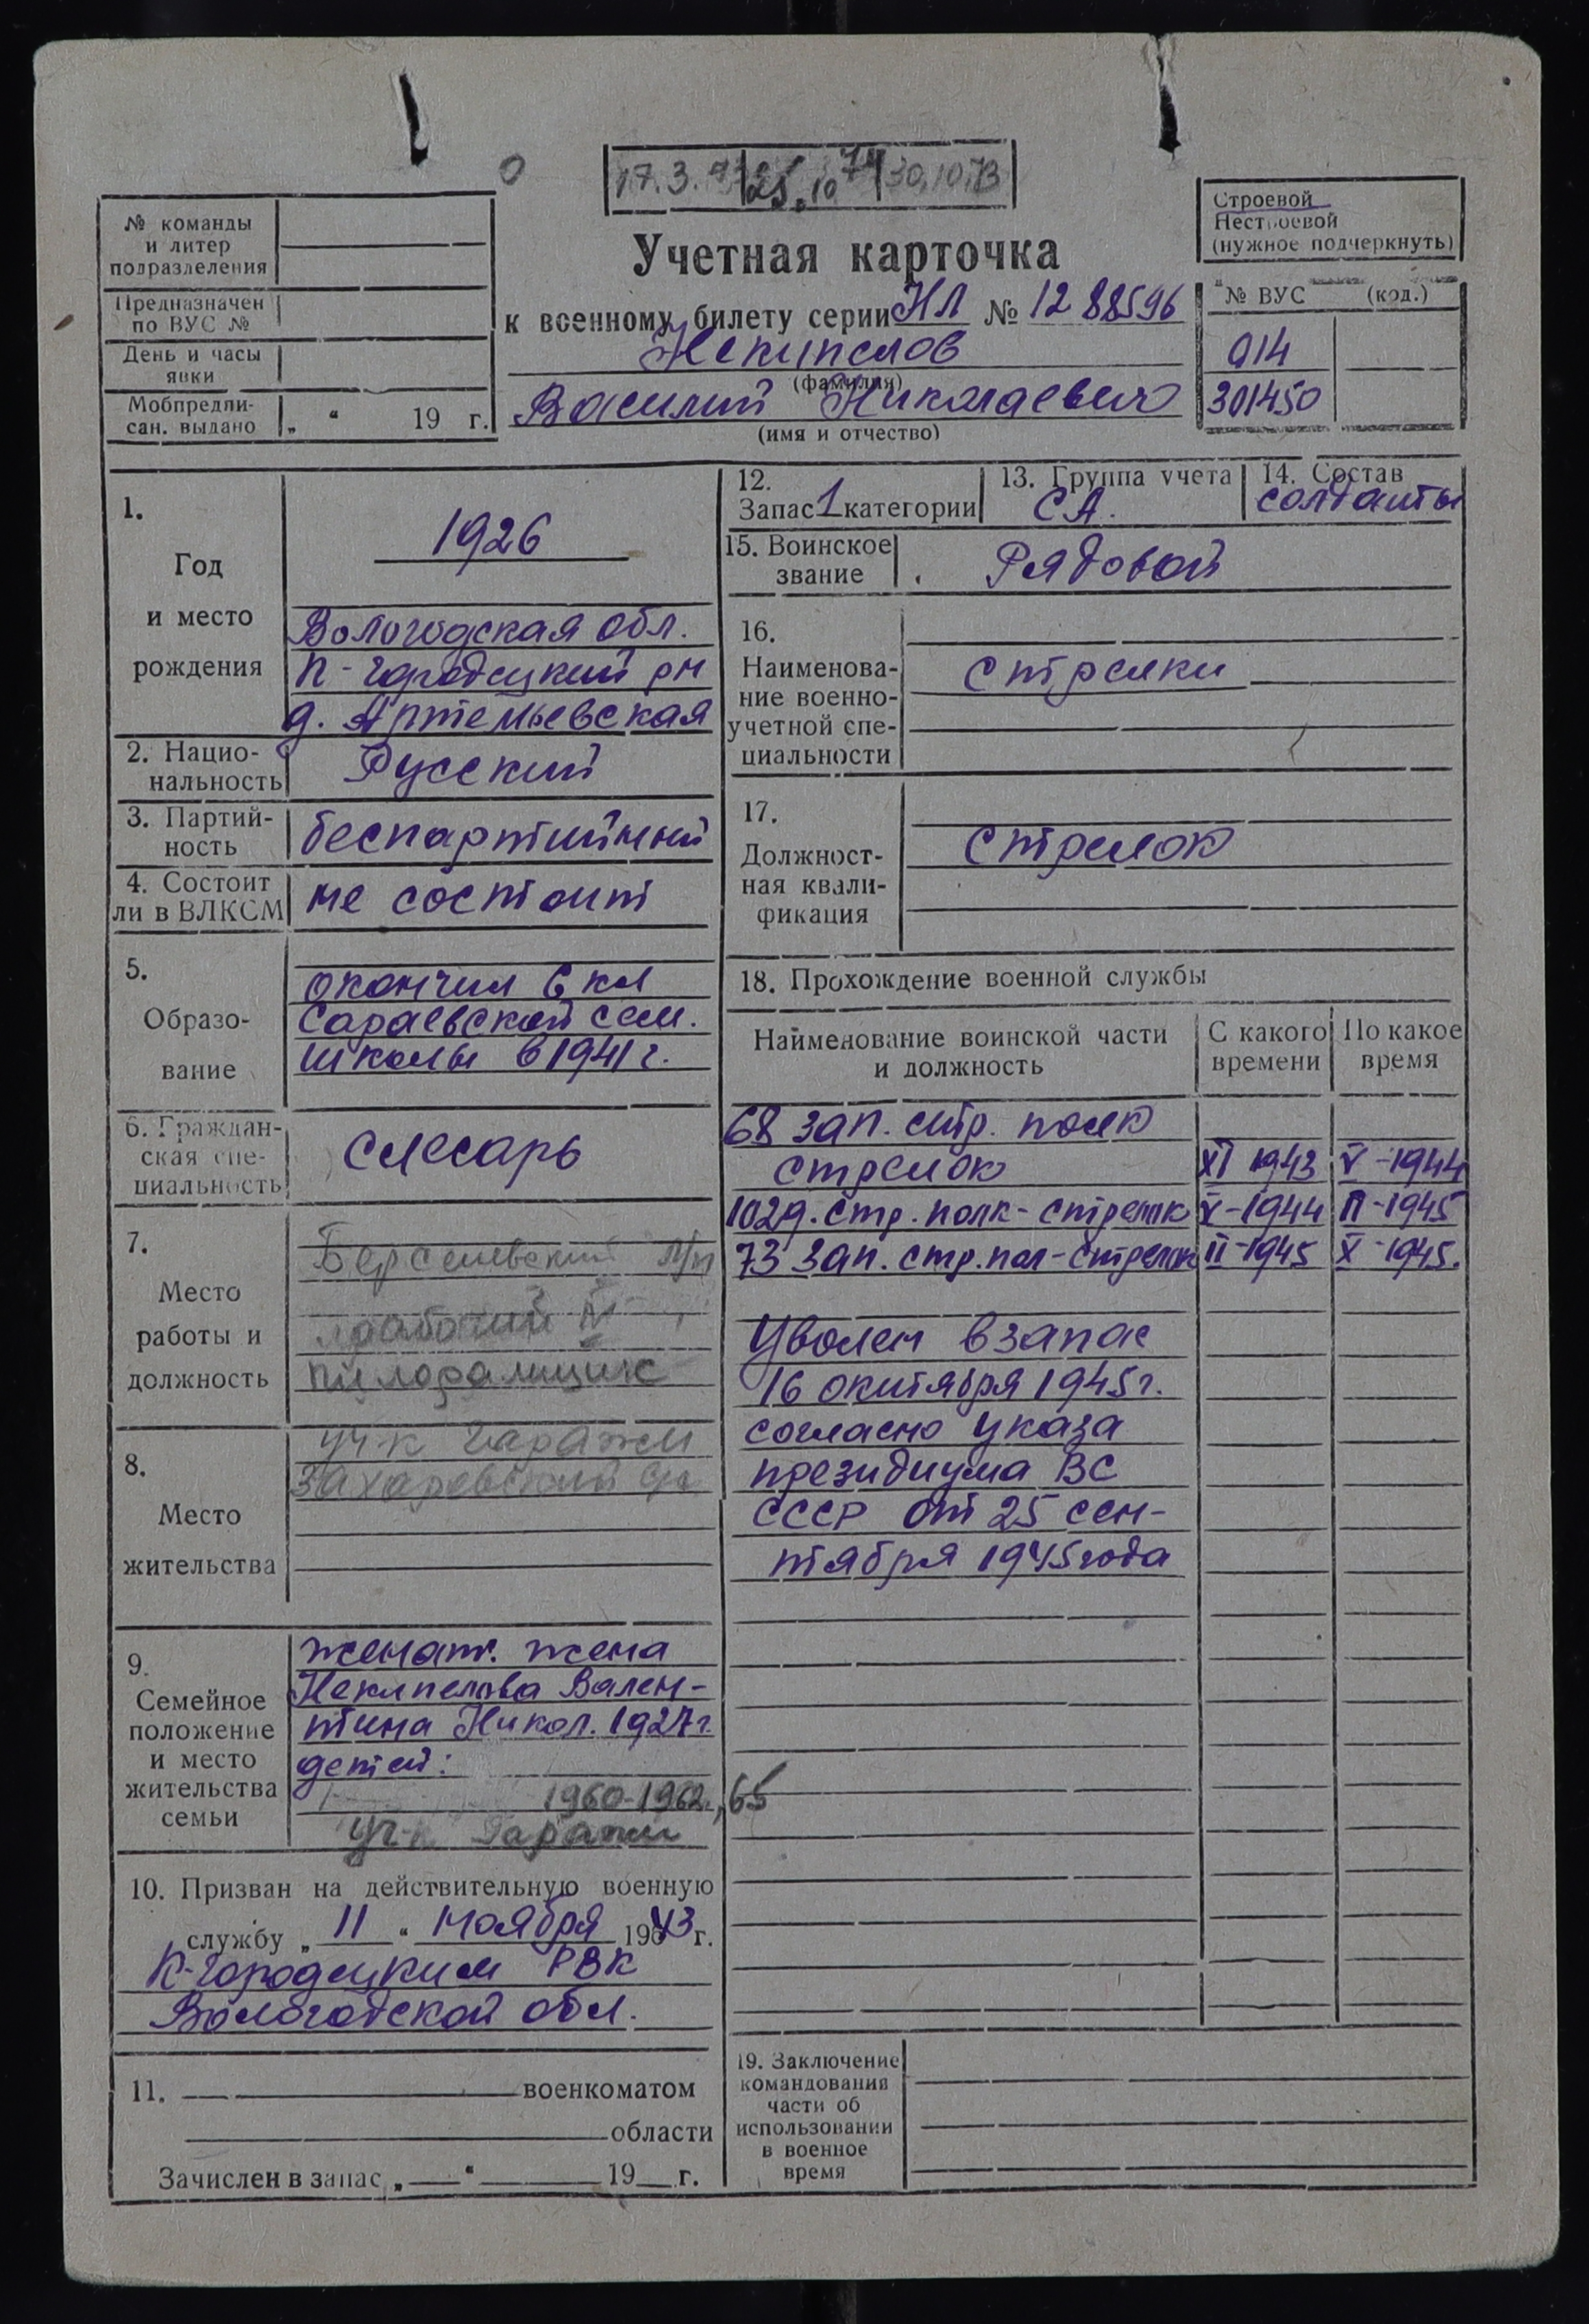 17.3.
25.10 74
30.10.73
№ команды
и литер
подразделения
Предназначен
по ВУС №
День и часы
явки
Мобпредпи-
сан. выдано „ “ 19 г.
Учетная карточка
к военному билету серии НЛ № 1288596
Некипелов
(фамилия)
Василий Николаевич
(имя и отчество)
Строевой
Нестроевой
(нужное подчеркнуть)
№ ВУС (код.)
014
301450
1.
Год
и место
рождения
1926
Вологодская обл.
К-городецкий рн
д. Артемьевская
2. Нацио-
нальность
Русский
3. Партий-
ность
беспартийный
4. Состоит
ли в ВЛКСМ
не состоит
5.
Образо-
вание
окончил 6 кл
Сараевской сем.
школы в 1941 г.
6. Граждан-
ская спе-
циальность
слесарь
7.
Место
работы и
должность
рабочий
пилорамщик
8.
Место
жительства
уч-к Гаражи
Захаровский
9.
Семейное
положение
и место
жительства
семьи
женат. жена
Некипелова Вален-
тина Никол. 1927г.
детей:
1960-1962, 65
уч-к Гаражи
10. Призван на действительную военную
службу „ 11 “ ноября 1943 г.
К-городецким РВК
Вологодской обл.
11. военкоматом
области
Зачислен в запас „ “ 19 г.
12.
Запас 1 категории
13. Группа учета
СА.
14. Состав
солдаты
15. Воинское
звание
Рядовой
16.
Наименова-
ние военно-
учетной спе-
циальности
стрелки
17.
Должност-
ная квали-
фикация
стрелок
18. Прохождение военной службы
Наименование воинской части
и должность
С какого
времени
По какое
время
68 зап. стр. полк
стрелок XI 1943 V-1944
1029. стр. полк-стрелок V-1944 II-1945
73 зап. стр. пол-стрелок II-1945 X-1945.
Уволен в запас
16 октября 1945г.
согласно указа
президиума ВС
СССР от 25 сен-
тября 1945 года
19. Заключение
командования
части об
использовании
в военное
время